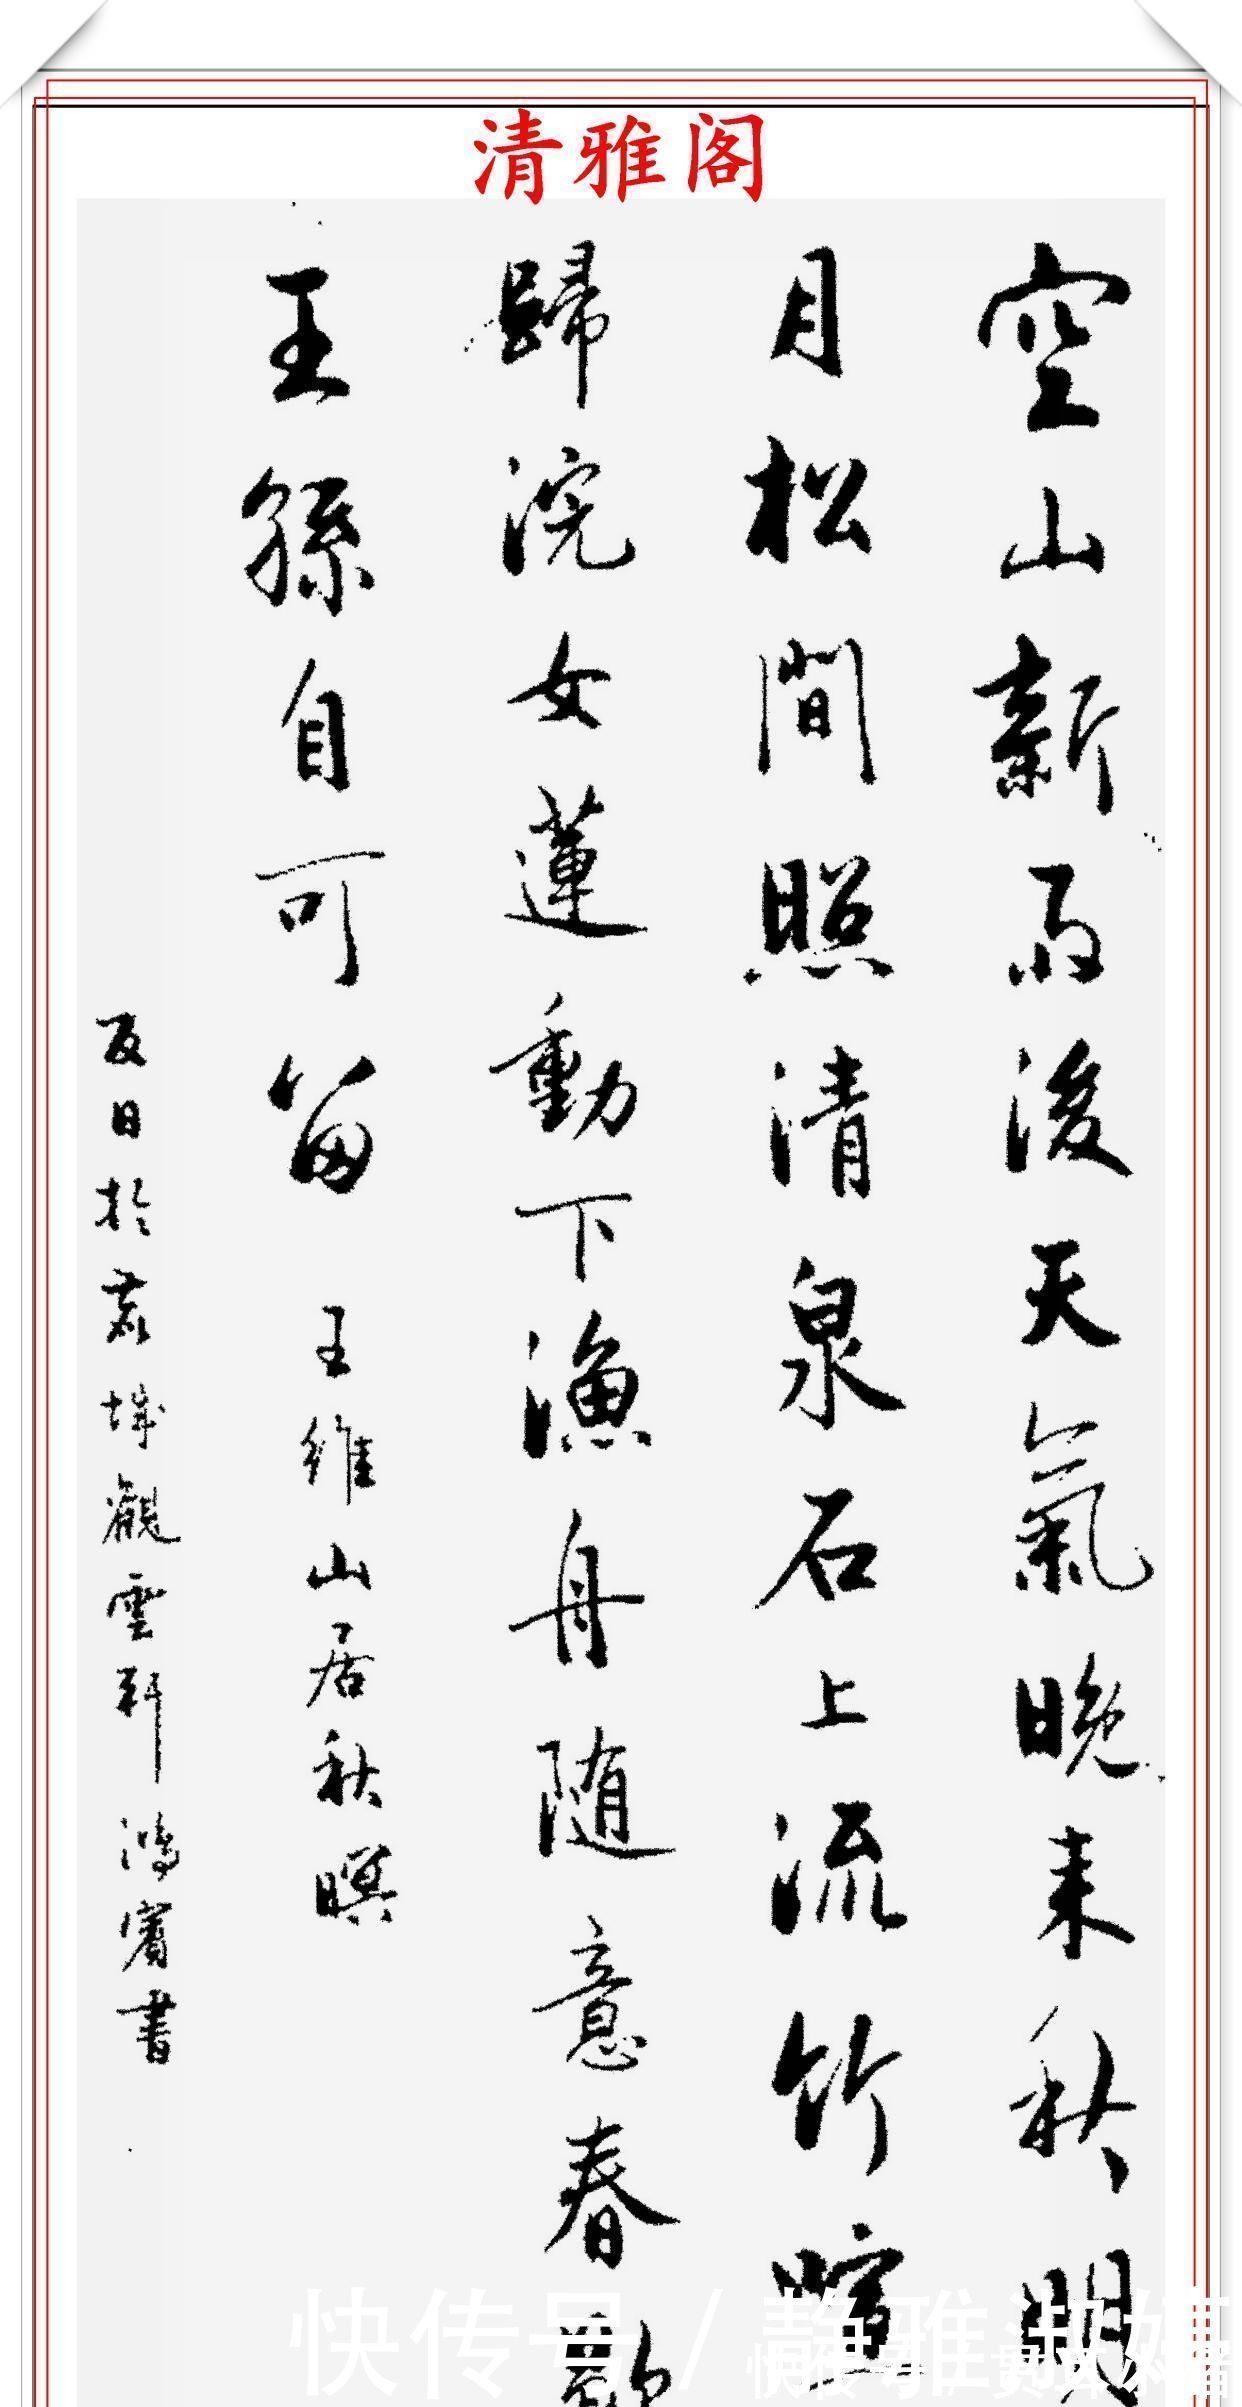 清雅阁
空山新雨後天氣晚来秋明
月松間照清泉石上流竹喧
歸浣女蓮動下漁舟随意春歇
王孫自可留 王維山居秋暝
夏日於蓉城觀雲軒鴻賓書
快传号/静雅淑婧